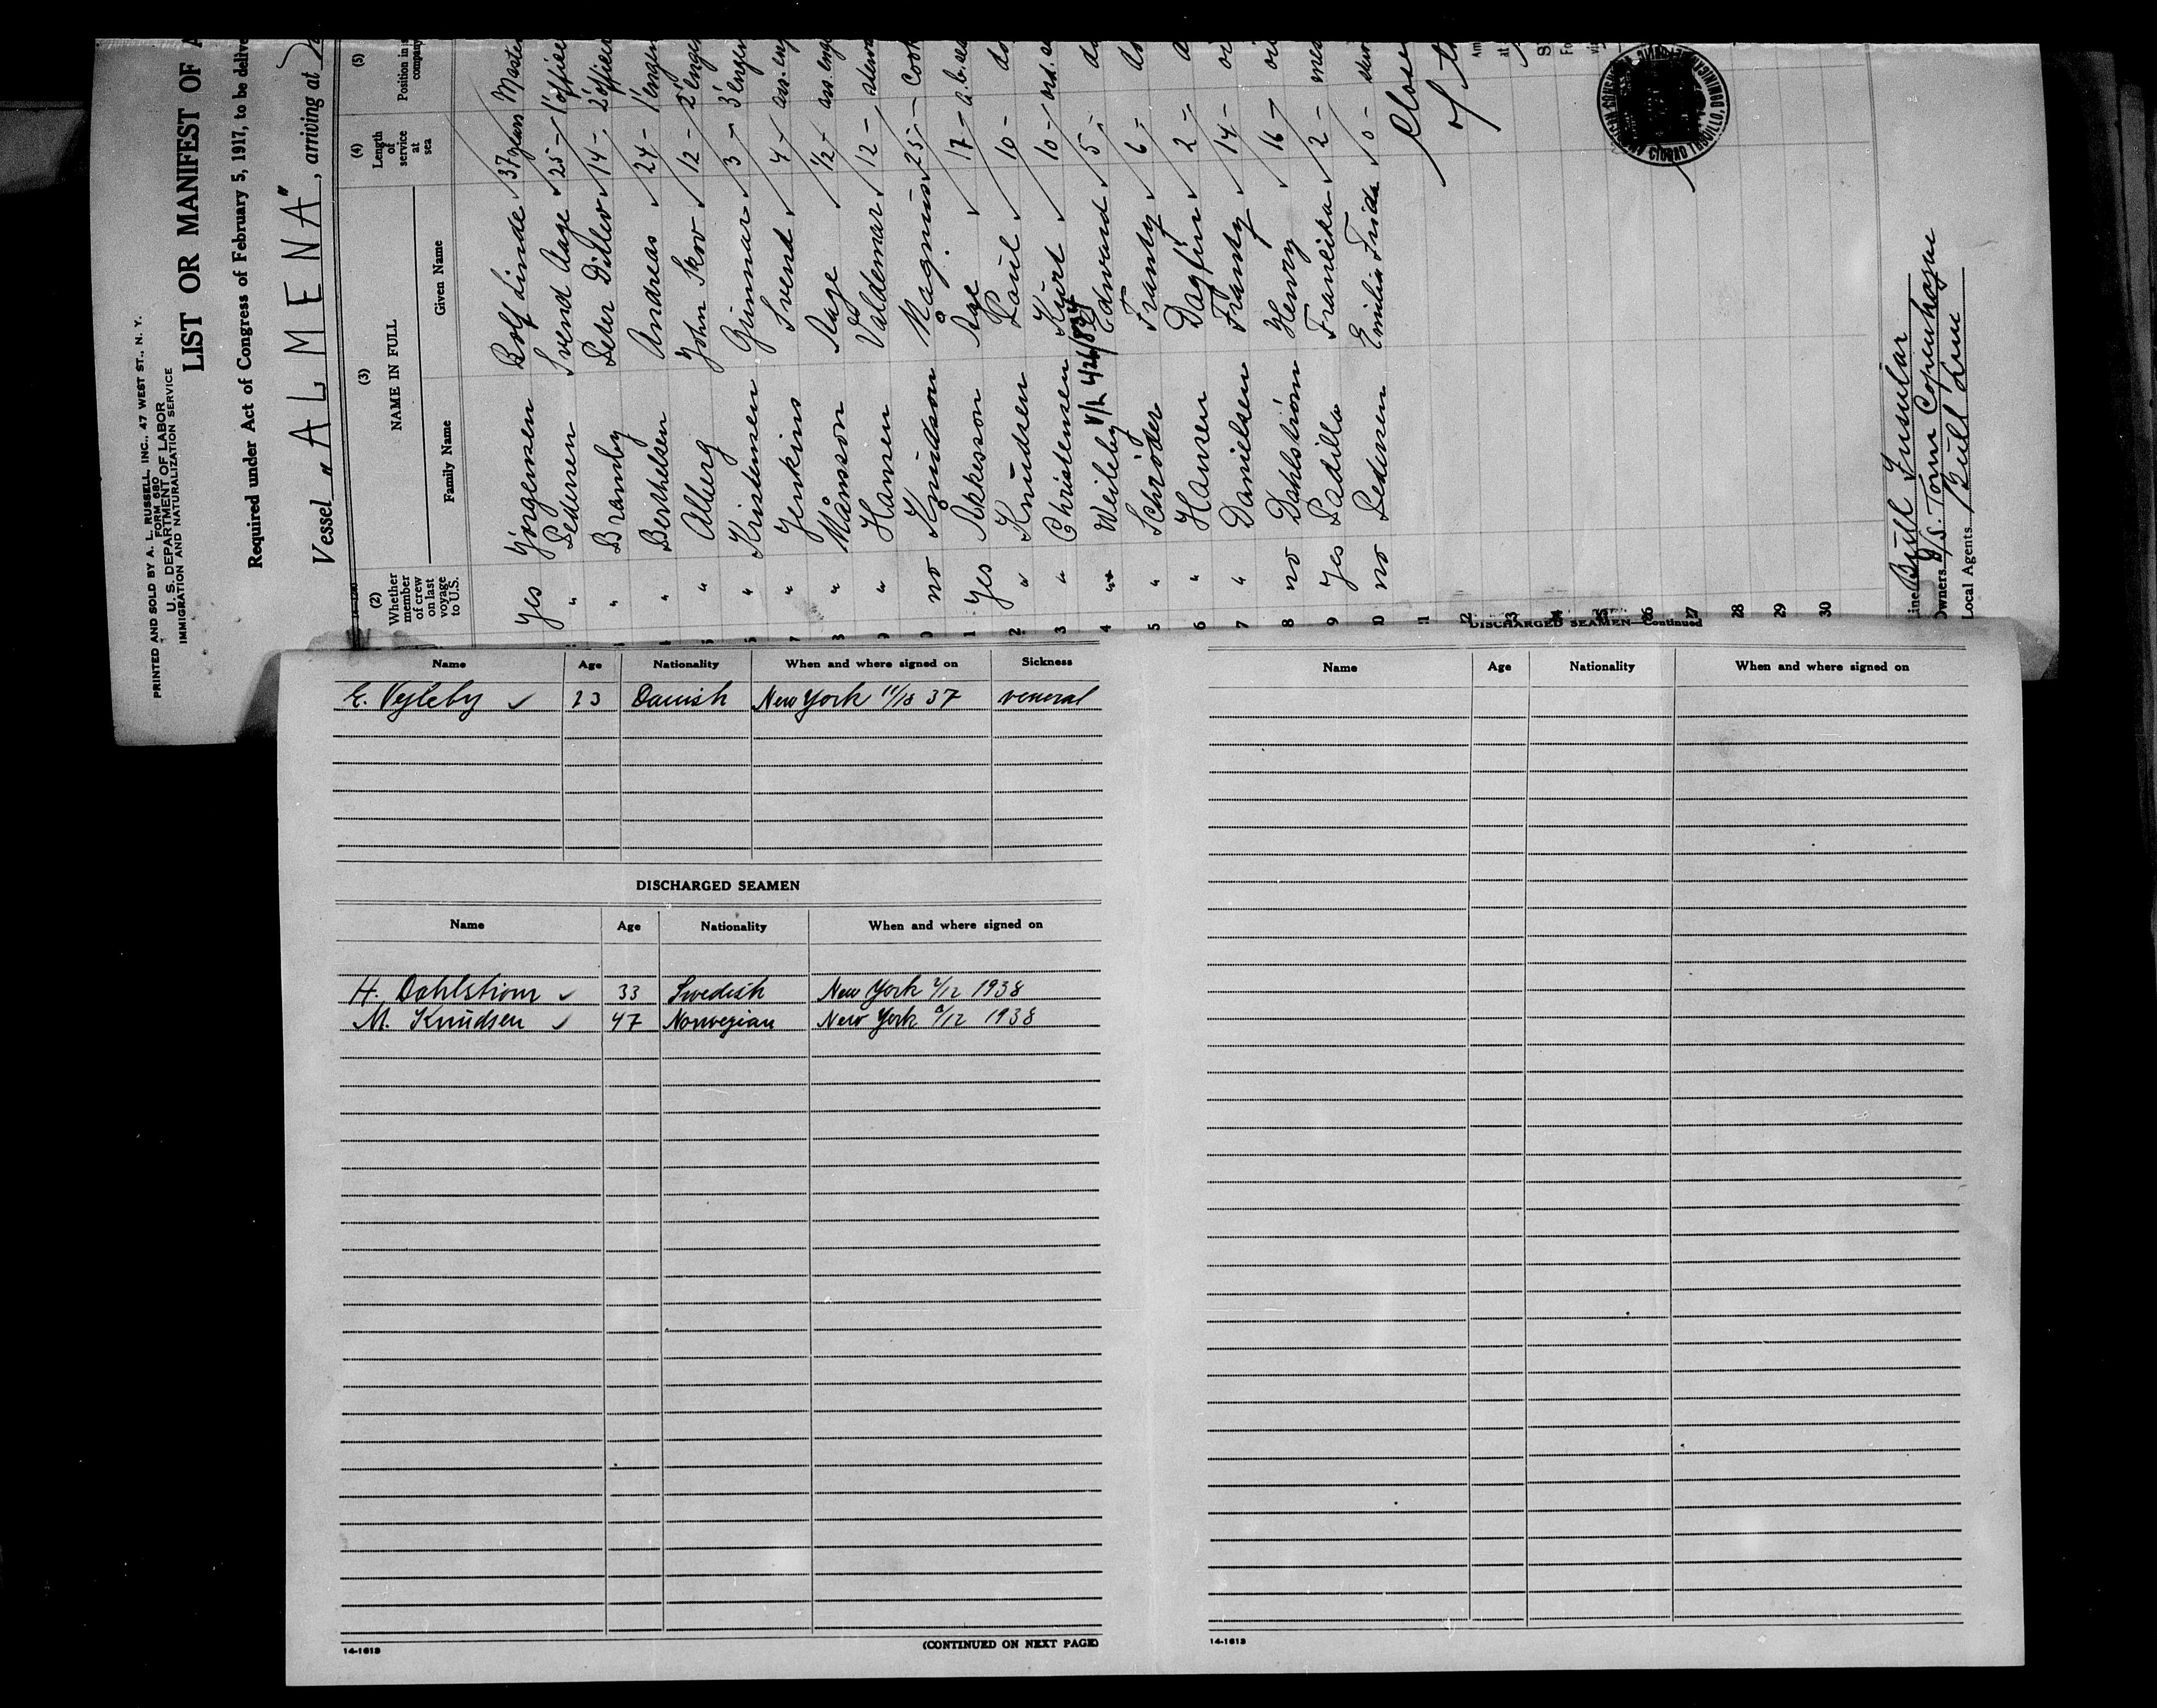 PRINTED AND SOLD BY A. L. RUSSELL, INC., 47 WEST ST., N. Y.
FORM 680
U. S. DEPARTMENT OF LABOR
IMMIGRATION AND NATURALIZATION SERVICE
LIST OR MANIFEST OF A
Required under Act of Congress of February 5, 1917, to be delive
Vessel "ALMENA", arriving at
(2) Whether member of crew on last voyage to U.S.
(3) NAME IN FULL
Family Name Given Name
(4) Length of service at sea
(5) Position in company
Yes Jörgensen Rolf Linde 37 years Master
" Pedersen Svend Aage 25 - 1' officer
" Bramby Peter Ditlev 14 - 2' officer
" Berthelsen Andreas 24 - 1' engen
" Alberg John Skov 12 - 2' engen
" Kristensen Gunnar 3 - 3' engen
7 " Jenkins Svend 4 - ass. eng
8 " Månsson Aage 1/2 - ass. eng
9 " Hansen Valdemar 12 - stewa
0 no Knudson Magnus 25 - Cook
1 Yes Akkesson Age 17 - a.b. sea
2 " Knudsen Poul 10 - do
3 " Christensen Kurt 10 - ord. se
4 " Weileby Edward 5 - do
5 " Schröder Frantz 6 - do
6 " Hansen Dagfin 2 - d
7 " Danielsen Frantz 14 - oi
8 no Dahlström Henry 16 - oi
9 Yes Padilla Franciska 2 - mes
0 no Pedersen Emilie Frida 0 - stew
21
22
23
24
25
26
27
28
29
30
Close
of th
CIUDAD TRUJILLO, DOMINIC
Line Bull Insular
Owners D/S. Torm Copenhagen
Local Agents Bull Line
Name Age Nationality When and where signed on Sickness
E. Vejleby ✓ 23 Danish New York 11/18 37 veneral
DISCHARGED SEAMEN
Name Age Nationality When and where signed on
H. Dahlstrom ✓ 33 Swedish New York 2/12 1938
M. Knudsen ✓ 47 Norwegian New York 2/12 1938
14-1613
(CONTINUED ON NEXT PAGE)
DISCHARGED SEAMEN—Continued
Name Age Nationality When and where signed on
14-1613